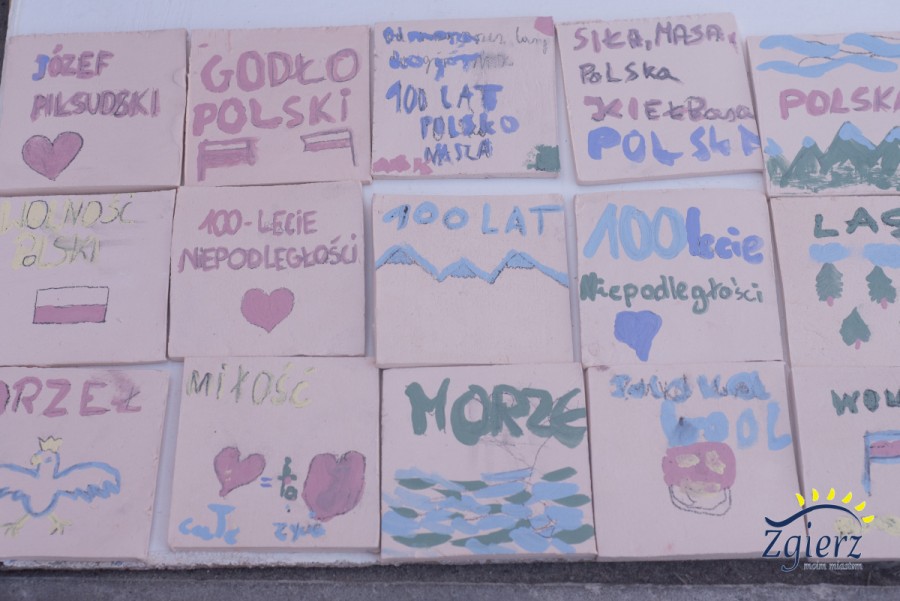 JÓZEF
PIŁSUDSKI
GODŁO
POLSKI
100 LAT
POLSKO
NASZA
SIŁA, MASA,
POLSKA
KIEŁBASA
POLSKA
POLSKA
WOLNOŚĆ
POLSKI
100-LECIE
NIEPODLEGŁOŚCI
100 LAT
100lecie
Niepodległości
LAS
ORZEŁ
MIŁOŚĆ
=
całe
życie
MORZE
COOL
WOL
Zgierz
moim miastem